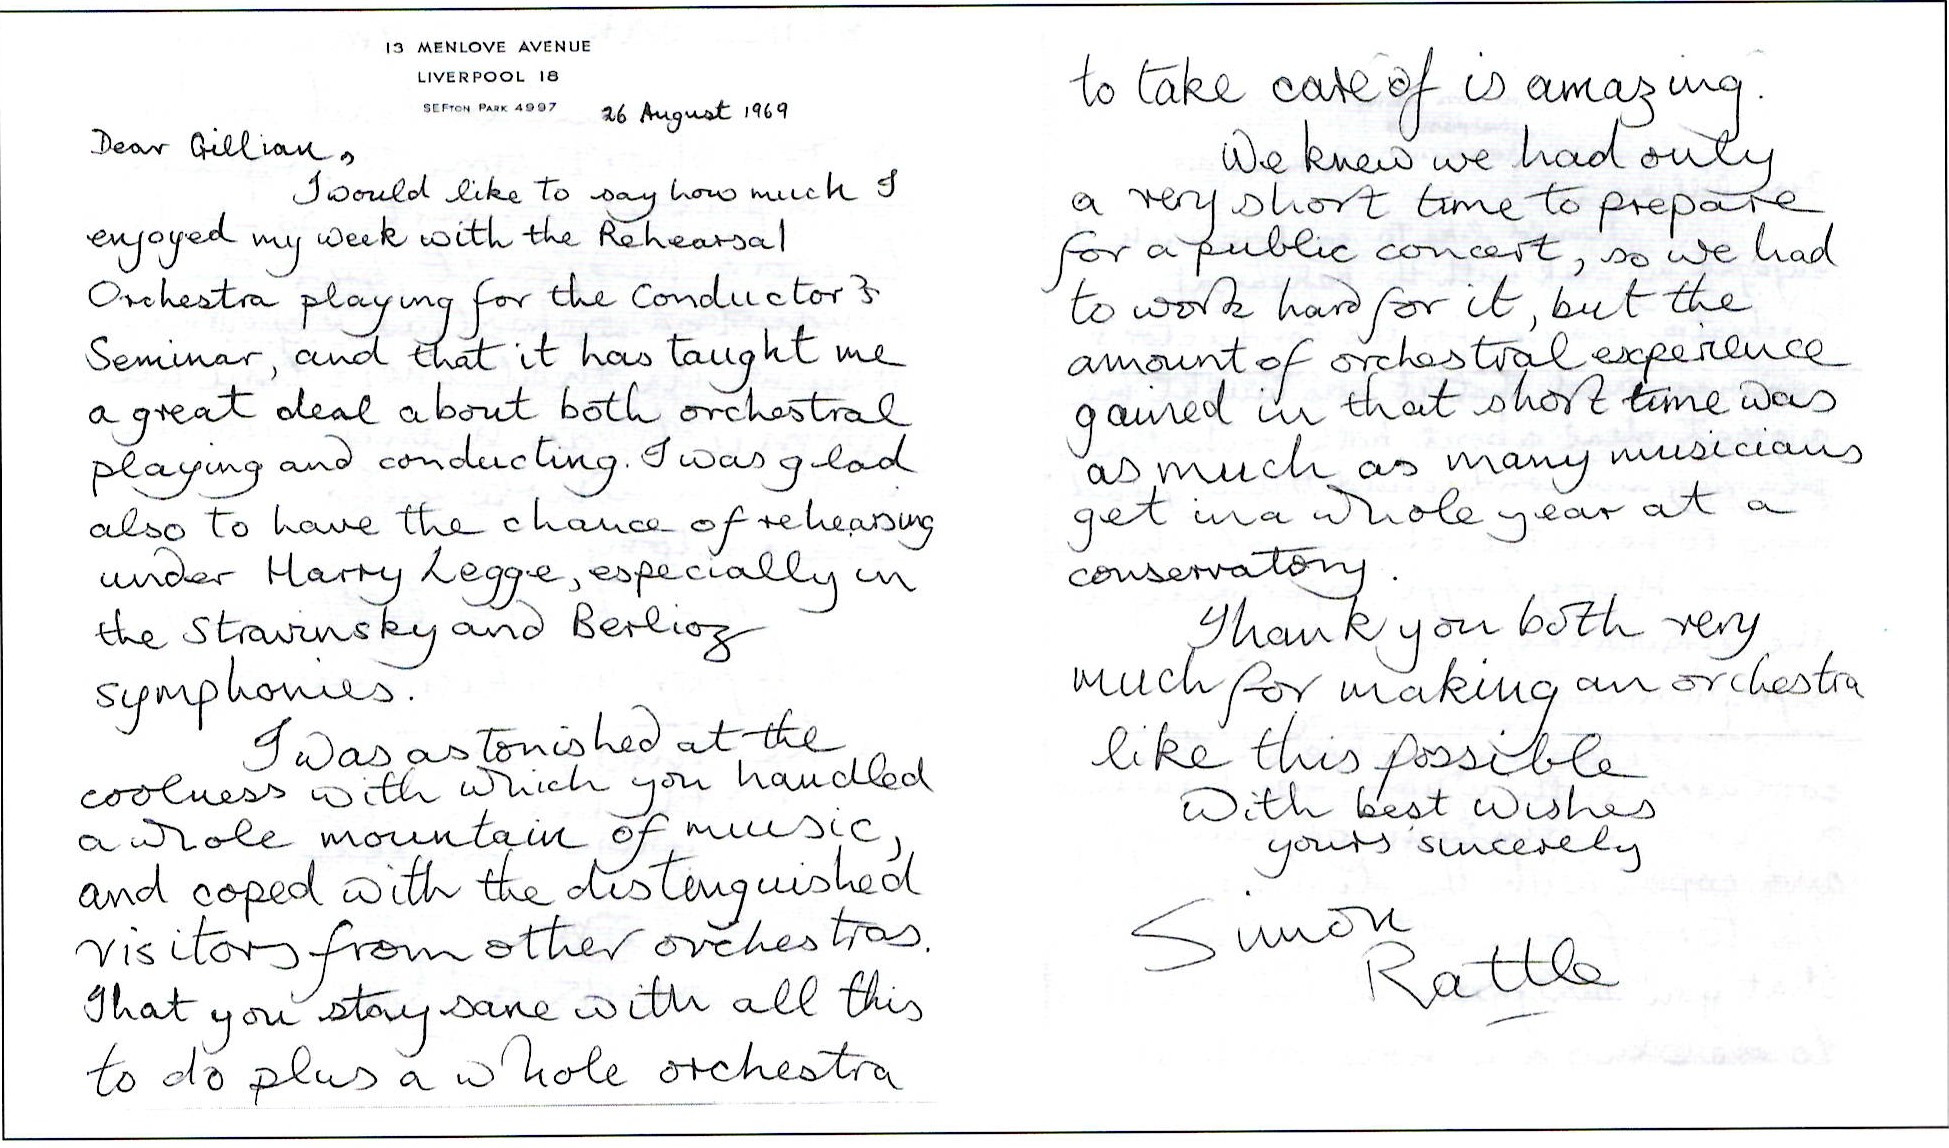 13 MENLOVE AVENUE
LIVERPOOL 18
SEFTON PARK 4997
26 August 1969
Dear Gillian,
I would like to say how much I
enjoyed my week with the Rehearsal
Orchestra playing for the Conductor's
Seminar, and that it has taught me
a great deal about both orchestral
playing and conducting. I was glad
also to have the chance of rehearsing
under Harry Legge, especially in
the Stravinsky and Berlioz
symphonies.
I was astonished at the
coolness with which you handled
a whole mountain of music,
and coped with the distinguished
visitors from other orchestras.
That you stay sane with all this
to do plus a whole orchestra
to take care of is amazing.
We knew we had only
a very short time to prepare
for a public concert, so we had
to work hard for it, but the
amount of orchestral experience
gained in that short time was
as much as many musicians
get in a whole year at a
conservatory.
Thank you both very
much for making an orchestra
like this possible
With best wishes
yours sincerely
Simon
Rattle